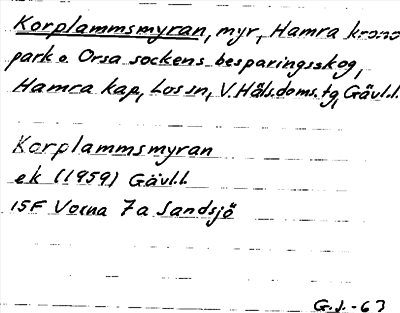 Korplammsmyran, myr, Hamra krono
park o. Orsa sockens besparingsskog,
Hamra kap, Los sn, V. Häls.doms.tg, Gävl.l.
Korplammsmyran
ek (1959) Gävl.l.
15F Voxna 7a Sandsjö
G.J.-63